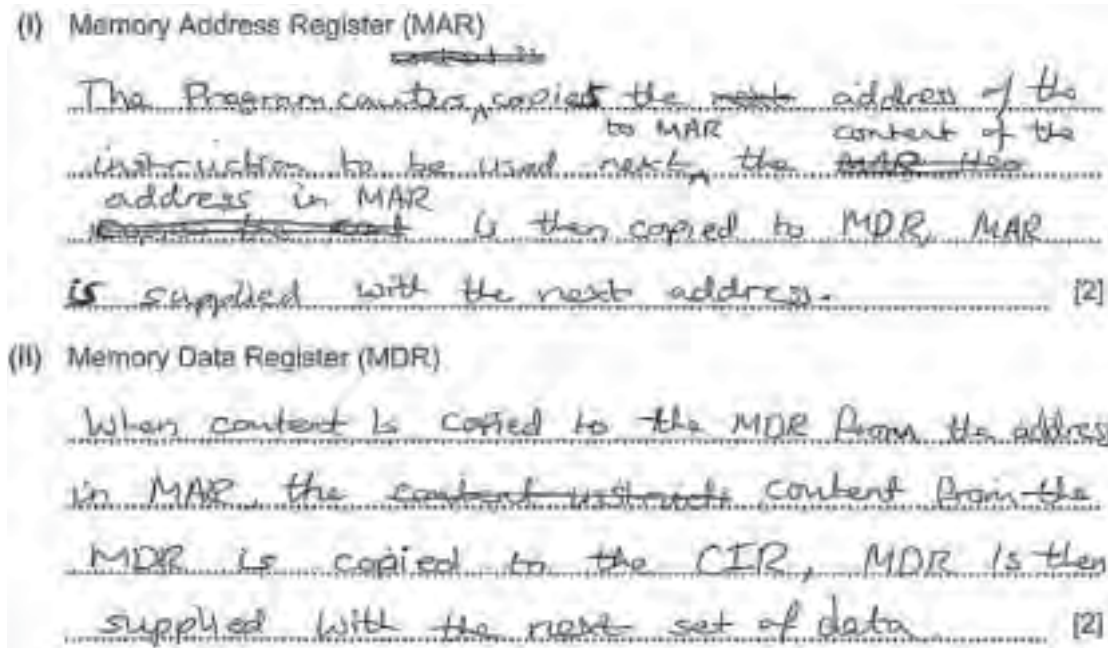 (i) Memory Address Register (MAR)
The Program counter copies the address of the
to MAR content of the
instruction to be used next, the
address in MAR
is then copied to MDR, MAR
is supplied with the next address. [2]
(ii) Memory Data Register (MDR)
When content is copied to the MDR from the address
in MAR, the content from the
MDR is copied to the CIR, MDR is then
supplied with the next set of data [2]